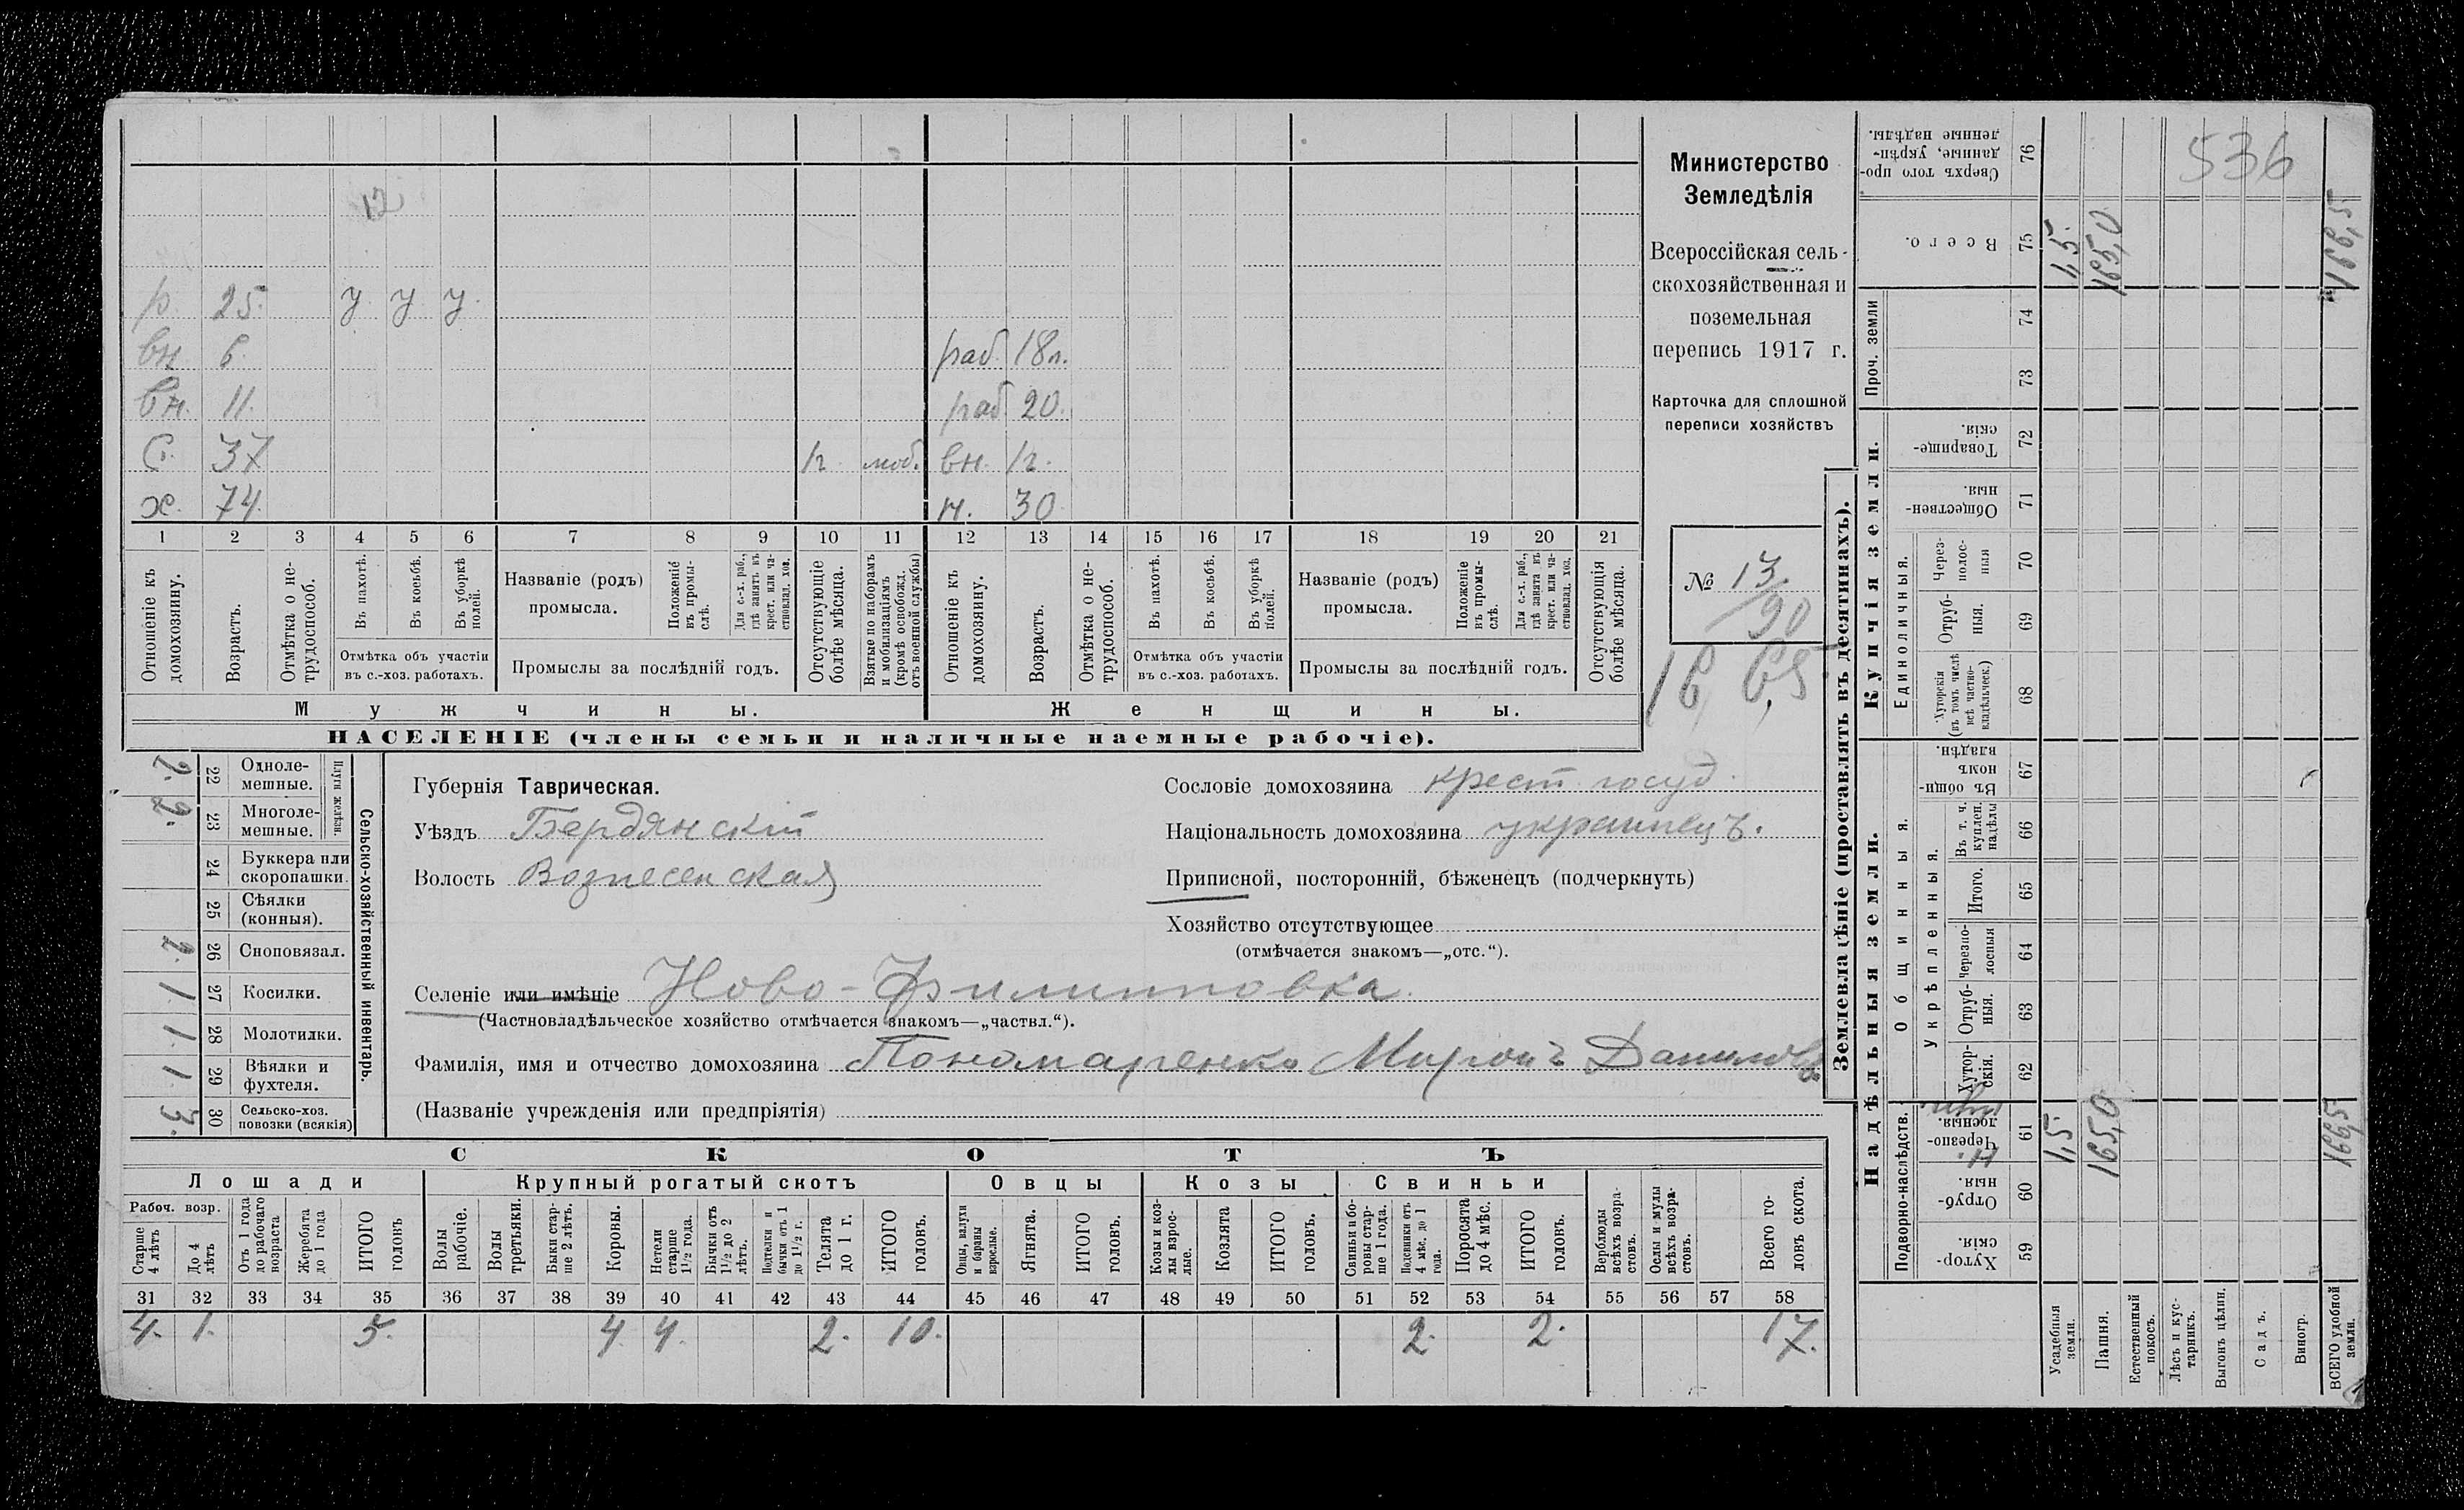 12
р. 25. у у у.
вн. 6. раб. 18 л.
вн. 11. раб. 20.
С. 37 1 г. моб. вн. 1 г.
х. 74. н. 30
1 2 3 4 5 6 7 8 9 10 11 12 13 14 15 16 17 18 19 20 21
Отношеніе къ домохозяину.
Возрастъ.
Отмѣтка о не-
трудоспособ.
Въ пахотѣ.
Въ косьбѣ.
Въ уборкѣ полей.
Отмѣтка объ участіи
въ с.-хоз. работахъ.
Названіе (родъ)
промысла.
Положеніе
въ промы-
слѣ.
Для с.-х. раб.,
гдѣ занятъ въ
крест. или ча-
стновлад. хоз.
Промыслы за послѣдній годъ.
Отсутствующіе
болѣе мѣсяца.
Взятые по наборамъ
и мобилизаціямъ
(кромѣ освобожд.
отъ военной службы)
Отношеніе къ
домохозяину.
Возрастъ.
Отмѣтка о не-
трудоспособ.
Въ пахотѣ.
Въ косьбѣ.
Въ уборкѣ
полей.
Отмѣтка объ участіи
въ с.-хоз. работахъ.
Названіе (родъ)
промысла.
Положеніе
въ промы-
слѣ.
Для с.-х. раб.,
гдѣ занята въ
крест. или ча-
стновлад. хоз.
Промыслы за послѣдній годъ.
Отсутствующія
болѣе мѣсяца.
Мужчины. Женщины.
НАСЕЛЕНІЕ (члены семьи и наличные наемные рабочіе).
Министерство
Земледѣлія
Всероссійская сель-
скохозяйственная и
поземельная
перепись 1917 г.
Карточка для сплошной
переписи хозяйствъ
№ 13
90
16,65
Сельско-хозяйственный инвентарь.
Плуги желѣзн.
2. 22 Одноле-
мешные.
2. 23 Многоле-
мешные.
24 Буккера или
скоропашки.
25 Сѣялки
(конныя).
1. 26 Сноповязал.
1 27 Косилки.
1. 28 Молотилки.
1 29 Вѣялки и
фухтеля.
3. 30 Сельско-хоз.
повозки (всякія)
Губернія Таврическая.
Уѣздъ Бердянскій
Волость Вознесенская
Сословіе домохозяина крест. госуд.
Національность домохозяина украинецъ.
Приписной, посторонній, бѣженецъ (подчеркнуть)
Хозяйство отсутствующее
(отмѣчается знакомъ—„отс.“).
Селеніе или имѣніе Ново-Филипповка.
(Частновладѣльческое хозяйство отмѣчается знакомъ—„частвл.“).
Фамилія, имя и отчество домохозяина Пономаренко Миронъ Данилов
(Названіе учрежденія или предпріятія)
СКОТЪ
Лошади Крупный рогатый скотъ Овцы Козы Свиньи
Рабоч. возр.
Старше
4 лѣтъ
До 4
лѣтъ
Отъ 1 года
до рабочаго
возраста
Жеребята
до 1 года
ИТОГО
головъ
Волы
рабочіе.
Волы
третьяки.
Быки стар-
ше 2 лѣтъ.
Коровы.
Нетели
старше
1½ года.
Бычки отъ
1½ до 2
лѣтъ.
Подтелки и
бычки отъ 1
до 1½ г.
Телята
до 1 г.
ИТОГО
головъ.
Овцы, валухи
и бараны
взрослые.
Ягнята.
ИТОГО
головъ.
Козы и коз-
лы взрос-
лые.
Козлята
ИТОГО
головъ.
Свиньи и бо-
ровы стар-
ше 1 года.
Подсвинки отъ
4 мѣс. до 1
года.
Поросята
до 4 мѣс.
ИТОГО
головъ.
Верблюды
всѣхъ возра-
стовъ.
Ослы и мулы
всѣхъ возра-
стовъ.
Всего го-
ловъ скота.
31 32 33 34 35 36 37 38 39 40 41 42 43 44 45 46 47 48 49 50 51 52 53 54 55 56 57 58
4. 1. 5. 4 4. 2. 10. 2. 2. 17.
Землевладѣніе (проставлять въ десятинахъ).
Купчія земли.
Надѣльныя земли.
Сверхъ того про-
данные, укрѣп-
ленные надѣлы. 76
536
Всего. 75 1,5 165,0 166,5
Проч. земли 74
73
Товарище-
скія. 72
Обществен-
ныя. 71
Единоличныя.
Через-
полос-
ныя 70
Отруб-
ныя. 69
Хуторскія
(въ томъ числѣ
всѣ частно-
владѣльческ.) 68
Общинныя.
Въ общи-
номъ
владѣн. 67
Укрѣпленныя.
Въ т. ч.
куплен.
надѣлы 66
Итого. 65
Черезпо-
лосныя 64
Отруб-
ныя. 63
Хутор-
скія. 62
Подворно-наслѣдств.
Черезпо-
лосныя. 61 1,5 165,0 166,5
Отруб-
ныя. 60
Хутор-
скія. 59
Усадебныя
земли.
Пашня.
Естественный
покосъ.
Лѣсъ и кус-
тарникъ.
Выгонъ цѣлин.
Садъ.
Виногр.
ВСЕГО удобной
земли.